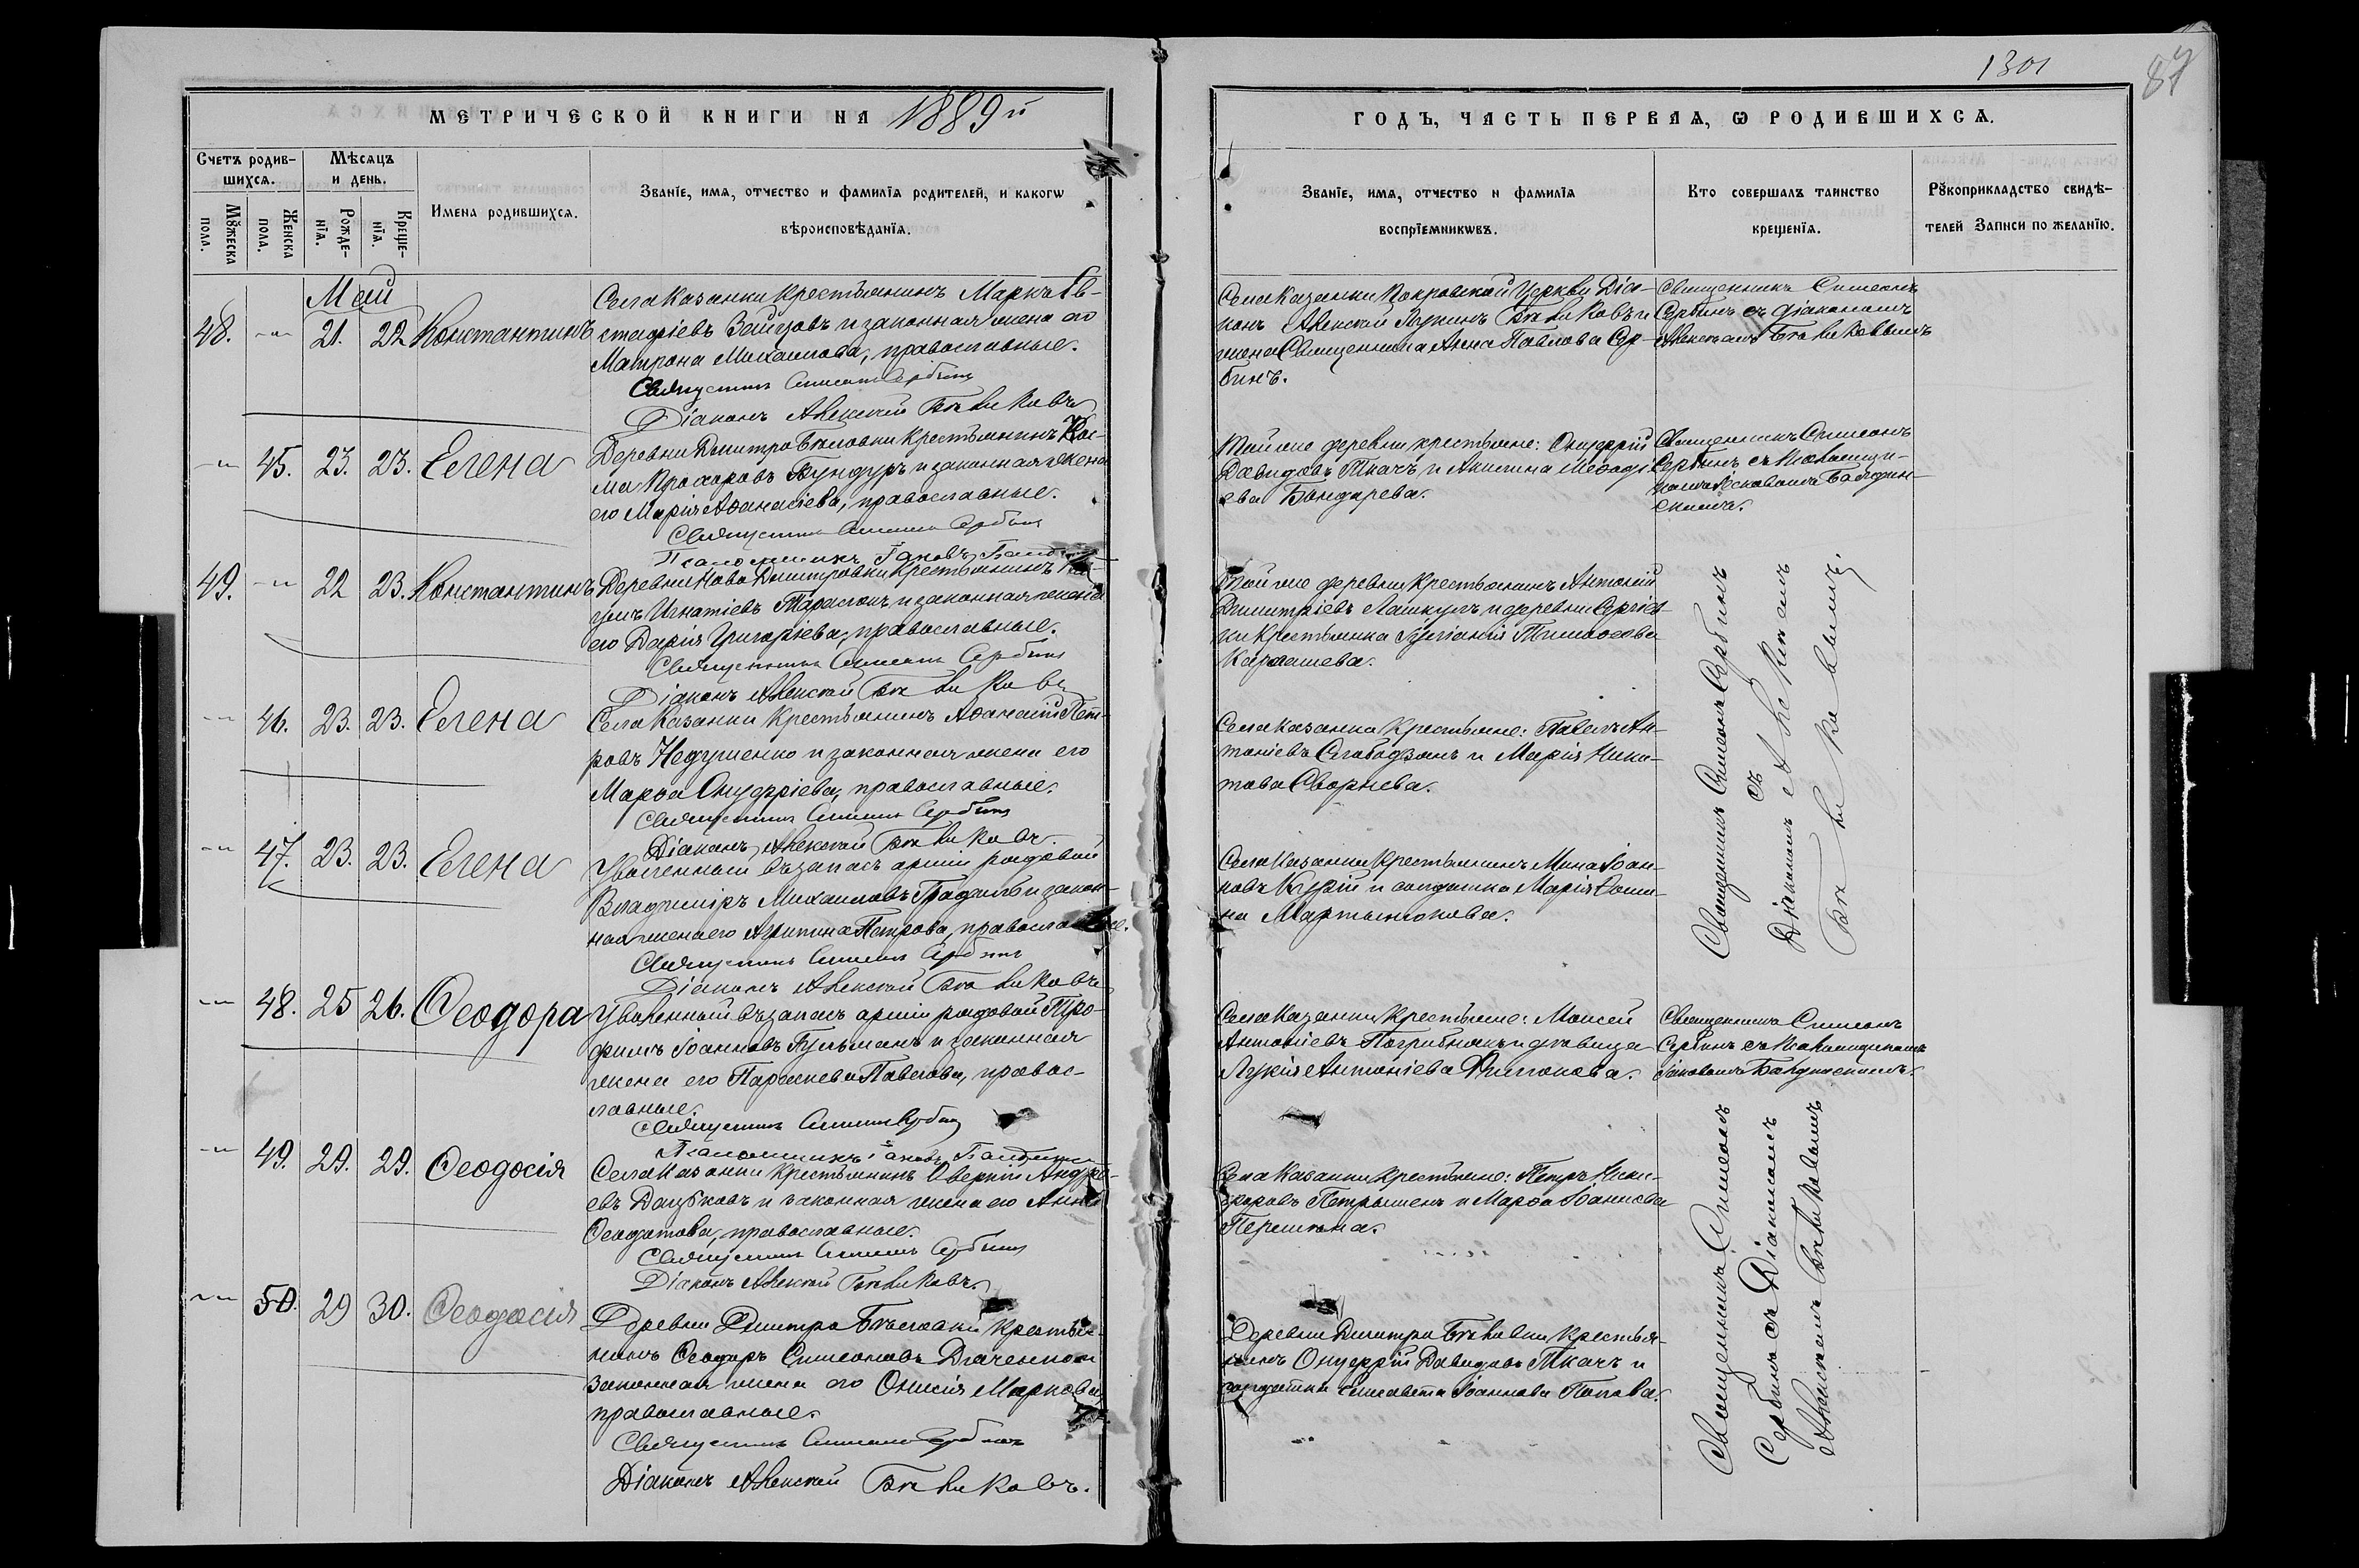 1301
87
МЕТРИЧЕСКОЙ КНИГИ НА 1889й
ГОДЪ, ЧАСТЬ ПЕРВАЯ, Ѡ РОДИВШИХСЯ.
Счетъ родив-
шихся.
Мѣсяцъ
и день.
Мꙋжеска
пола.
Женска
пола.
Рожде-
нїя.
Креще-
нїя.
Имена родившихся.
Званїе, имя, отчество и фамилїя родителей, и какогѡ
вѣроисповѣданїя.
Званїе, имя, отчество и фамилїя
воспрїемникѡвъ.
Кто совершалъ таинство
крещенїя.
Рꙋкоприкладство свидѣ-
телей записи по желанїю.
Май
48. 21. 22 Константинъ
Села Казанки крестьянинъ Маркъ Ев-
стафіевъ Зайцовъ и законная жена его
Матрона Михаилова, православные.
Священникъ Симеонъ Сербинъ
Діаконъ Алексѣй Бѣликовъ
Села Казанки Покровской Церкви Діа-
конъ Алексѣй Бѣликовъ и
жена Священника Анна Павлова Сер-
бинъ.
Священникъ Симеонъ
Сербинъ съ діакономъ
Алексѣемъ Бѣликовымъ
45. 23. 23. Елена
Деревни Дмитро Бѣловки крестьянинъ Кос-
ма Прохоровъ Бундуръ и законная жена
его Марія Аѳанасіева, православные.
Священникъ Симеонъ Сербинъ
Псаломщикъ Іаковъ
Той же деревни крестьяне: Онуфрій
Давидовъ Ткачъ и Акилина Меѳоді-
ева Бондарева.
Священникъ Симеонъ
Сербинъ съ Псаломщи-
комъ Іаковомъ
49. 22 23. Константинъ
Деревни Ново Дмитровки крестьянинъ
Игнатіевъ Тараслонъ и законная жена
его Дарія Григоріева, православные.
Священникъ Симеонъ Сербинъ
Діаконъ Алексѣй Бѣликовъ
Той же деревни крестьянинъ Антоній
Димитріевъ и деревни Сергіев-
ки крестьянка Іуліанія Тимоѳеева
Карташева.
Священникъ Симеонъ Сербинъ
съ
Діакономъ Алексѣемъ
Бѣликовымъ.
46. 23. 23. Елена
Села Казанки крестьянинъ Аѳанасій Пет-
ровъ Недушенко и законная жена его
Марѳа Онуфріева, православные.
Священникъ Симеонъ Сербинъ
Діаконъ Алексѣй Бѣликовъ.
Села Казанки крестьяне: Павелъ Ан-
тоніевъ Слободзянъ и Марія Ники-
това Сворнева.
47. 23. 23. Елена
Уволенный въ запасъ арміи рядовой
Владиміръ Михаиловъ и закон-
ная жена его Агрипина Петрова, православные.
Священникъ Симеонъ Сербинъ
Діаконъ Алексѣй Бѣликовъ
Села Казанки крестьянинъ Мина Іоан-
новъ и солдатка Марія Ѳоми-
на Мартынюкова.
48. 25 26. Ѳеодора
Уволенный въ запасъ арміи рядовой Тро-
фимъ Іоанновъ Гульманъ и законная
жена его Параскева Павлова, правос-
лавные.
Священникъ Симеонъ Сербинъ
Псаломщикъ Іаковъ
Села Казанки крестьяне: Моисей
Антоніевъ Погрибнякъ и дѣвица
Лукія Антоніева Филонова.
Священникъ Симеонъ
Сербинъ съ Псаломщикомъ
Іаковомъ
49. 29. 29. Ѳеодосія
Села Казанки крестьянинъ Аверкій Андре-
евъ и законная жена его Анна
Ѳеодотова, православные.
Священникъ Симеонъ Сербинъ
Діаконъ Алексѣй Бѣликовъ.
Села Казанки крестьяне: Петръ Ники-
форовъ Петрышенъ и Марѳа Іоаннова
Священникъ Симеонъ
Сербинъ съ Діакономъ
Алексѣемъ Бѣликовымъ
50. 29 30. Ѳеодосія
Деревни Дмитро Бѣловки крестья-
нинъ Ѳеодоръ Симеоновъ Дяченко и
законная жена его Онисія Маркова,
православные.
Священникъ Симеонъ Сербинъ
Діаконъ Алексѣй Бѣликовъ.
Деревни Дмитро Бѣловки крестья-
нинъ Онуфрій Давидовъ Ткачъ и
солдатка Елисавета Іоаннова Попова.